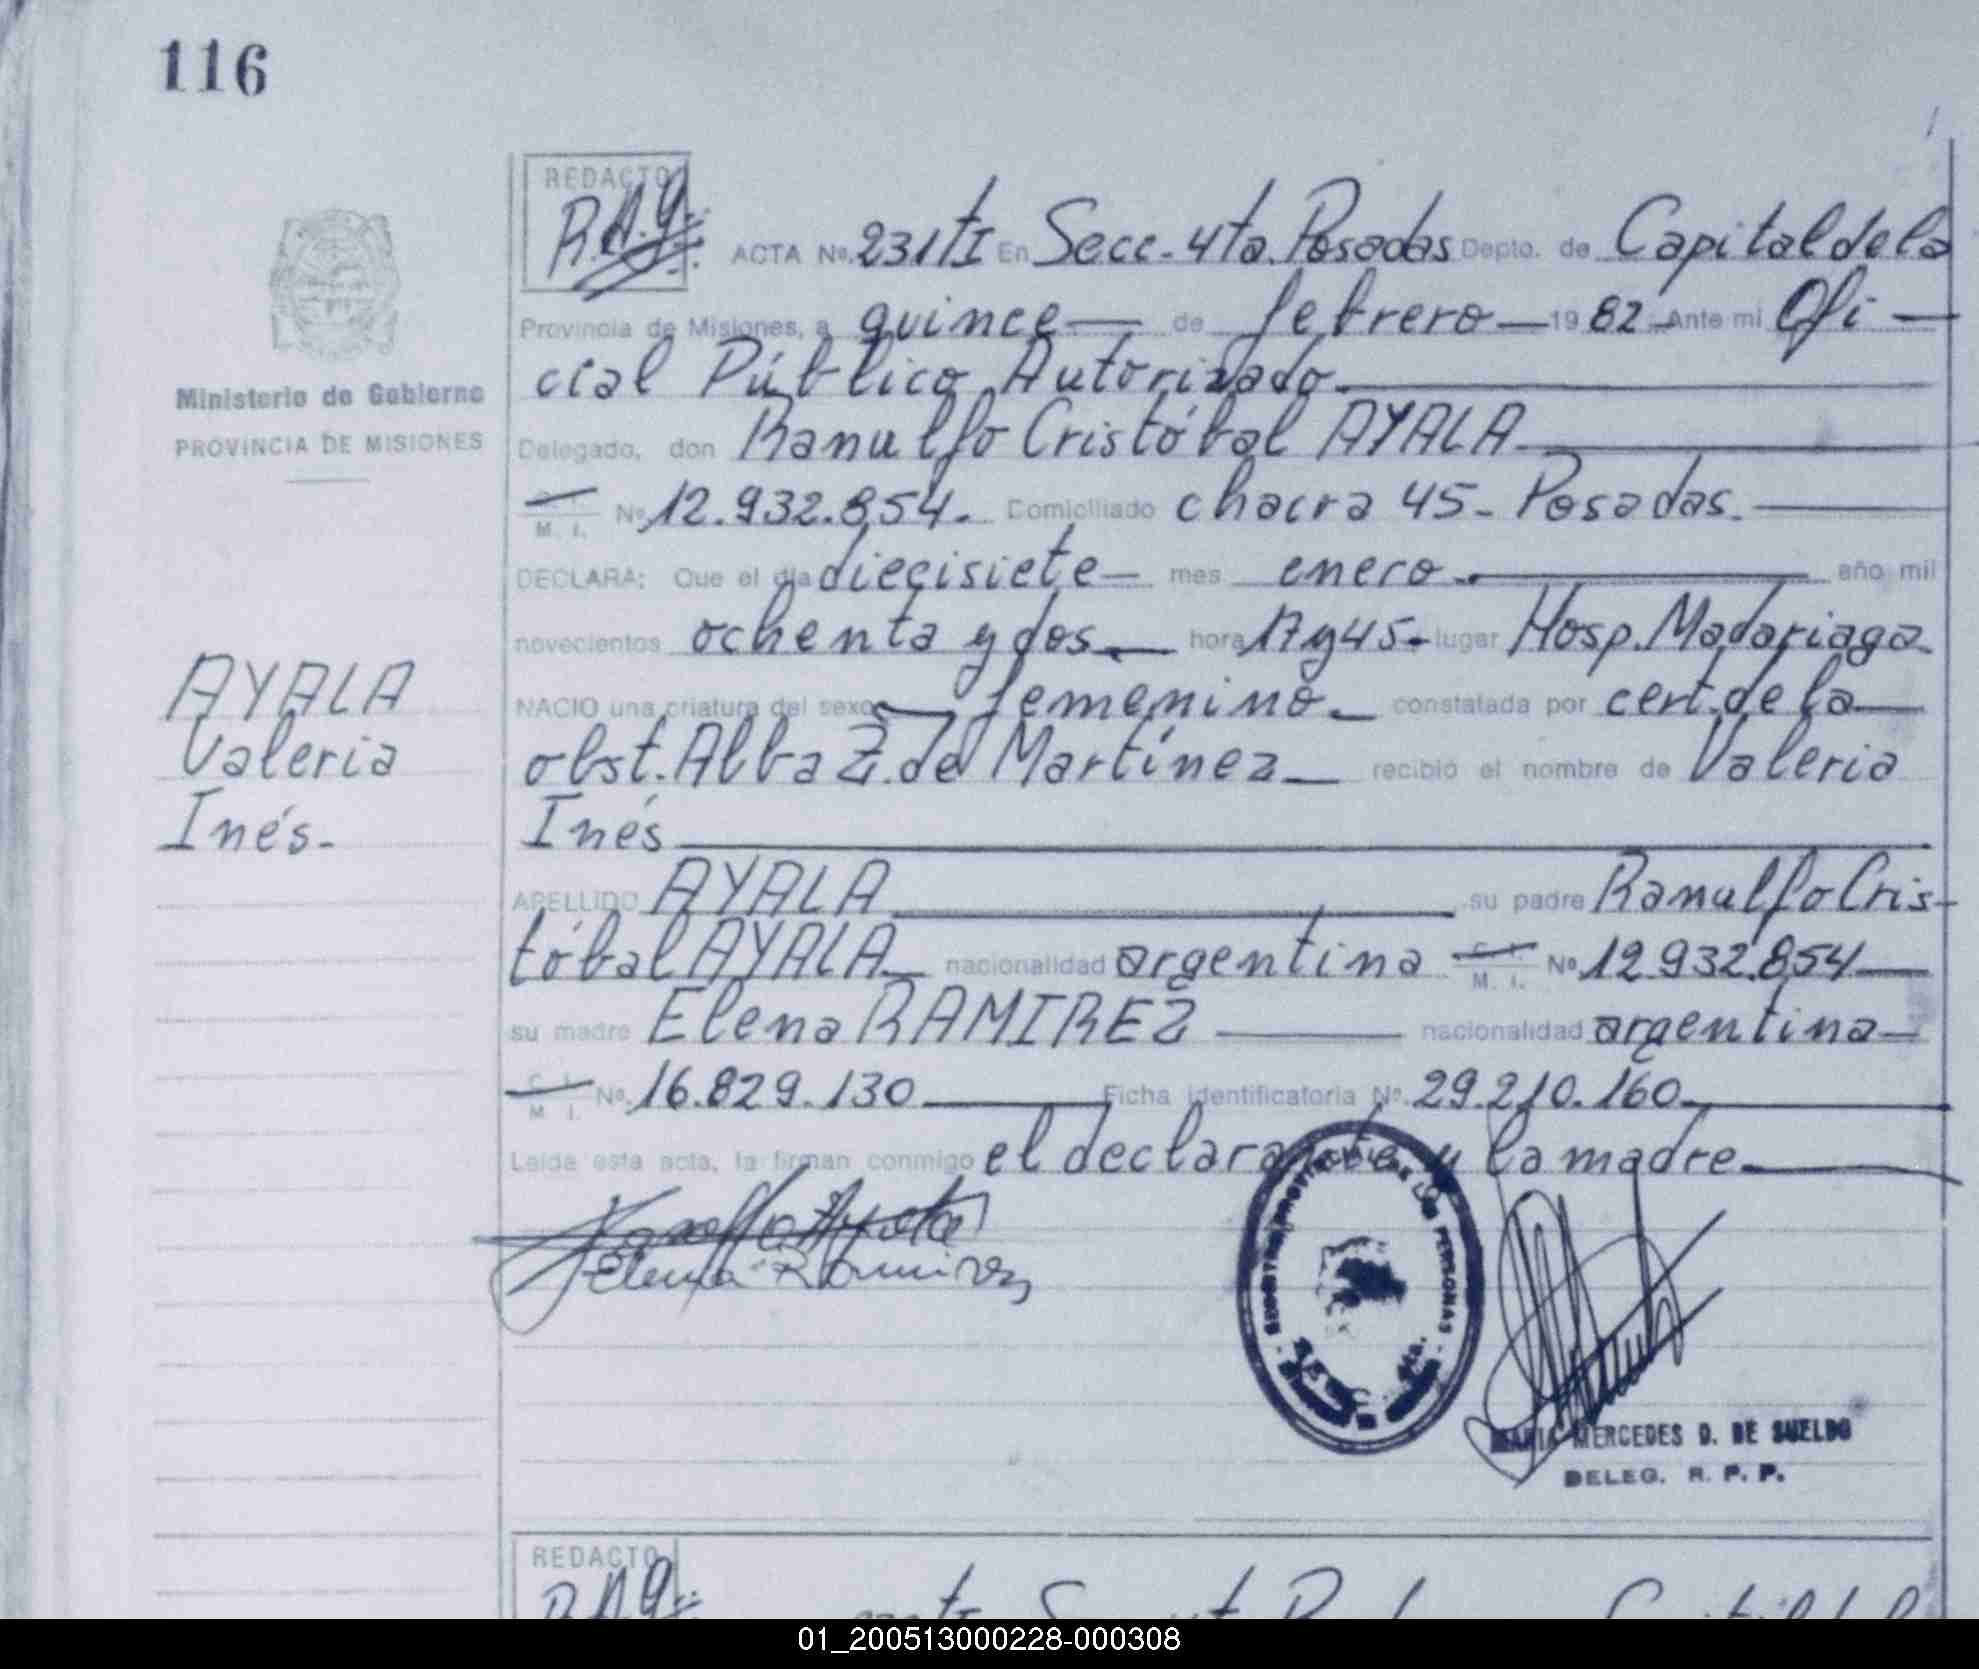 116
REDACTO
R.A.G.
ACTA No. 231 tI En Secc. 4ta. Posadas Depto. de Capital de la
Provincia de Misiones, a quince de febrero 1982 Ante mi Ofi-
cial Público Autorizado.
Delegado, don Ranulfo Cristóbal AYALA
M. I. No. 12.932.854. Domiciliado chacra 45 - Posadas.
DECLARA: Que el día diecisiete mes enero. año mil
novecientos ochenta y dos hora 17 y 45 - lugar Hosp. Madariaga.
NACIO una criatura del sexo femenino. constatada por cert. de la
obst. Alba Z. de Martínez recibió el nombre de Valeria
Inés
APELLIDO AYALA su padre Ranulfo Cris-
tóbal AYALA nacionalidad argentina C. I. M. I. No 12.932.854
su madre Elena RAMIREZ nacionalidad argentina
C. I. M. I. No. 16.829.130 Ficha identificatoria No. 29.210.160
Leída esta acta, la firman conmigo el declarante y la madre.
Elena Ramirez
Ministerio de Gobierno
PROVINCIA DE MISIONES
AYALA
Valeria
Inés.
REGISTRO PROVINCIAL DE LAS PERSONAS
SECC. 4ta.
MARIA MERCEDES D. DE SUELDO
DELEG. R. P. P.
REDACTO
R.A.G.
01_200513000228-000308